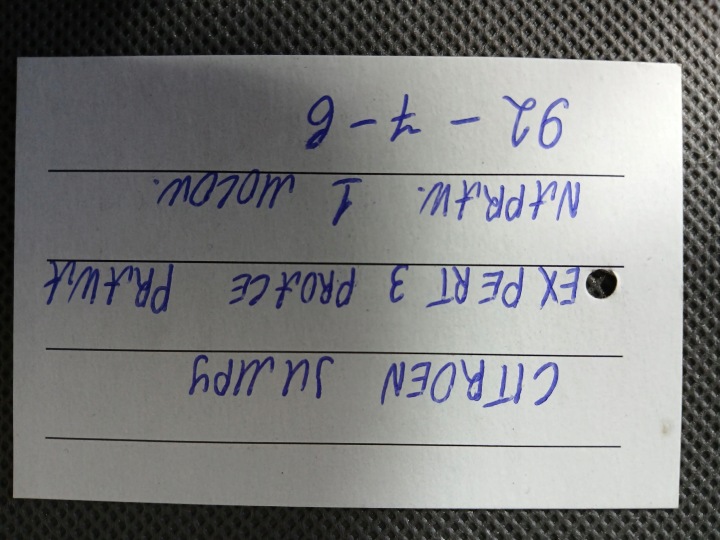 CITROEN JUMPY
EXPERT 3 PROACE PRAWA
NAPRAW. 1 MOCOW.
92 - 7 - 6